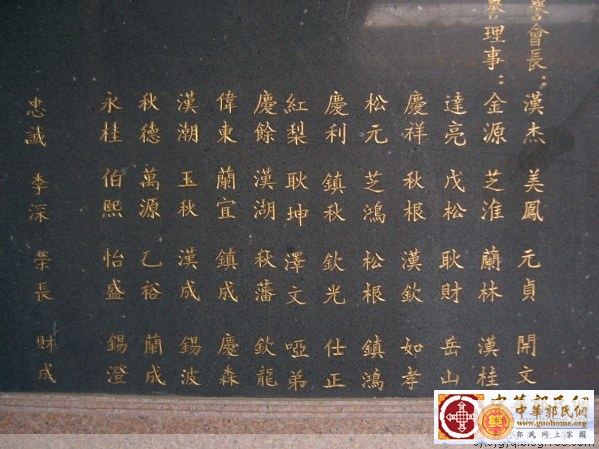 譽會長：漢杰 美鳳 元貞 開文
譽理事：金源 芝淮 蘭林 漢桂
達亮 戊松 耿財 岳山
慶祥 秋根 漢欽 如孝
松元 芝鴻 松根 鎮鴻
慶利 鎮秋 欽光 仕正
紅梨 耿坤 澤文 啞弟
慶餘 漢湖 秋藩 欽龍
偉東 蘭宜 鎮成 慶森
漢潮 玉秋 漢成 錫波
秋德 萬源 乙裕 蘭成
永桂 伯熙 怡盛 錫澄
忠誠 季深 業長 財成
中華郭氏網
www.guohome.org
郭氏网上家园